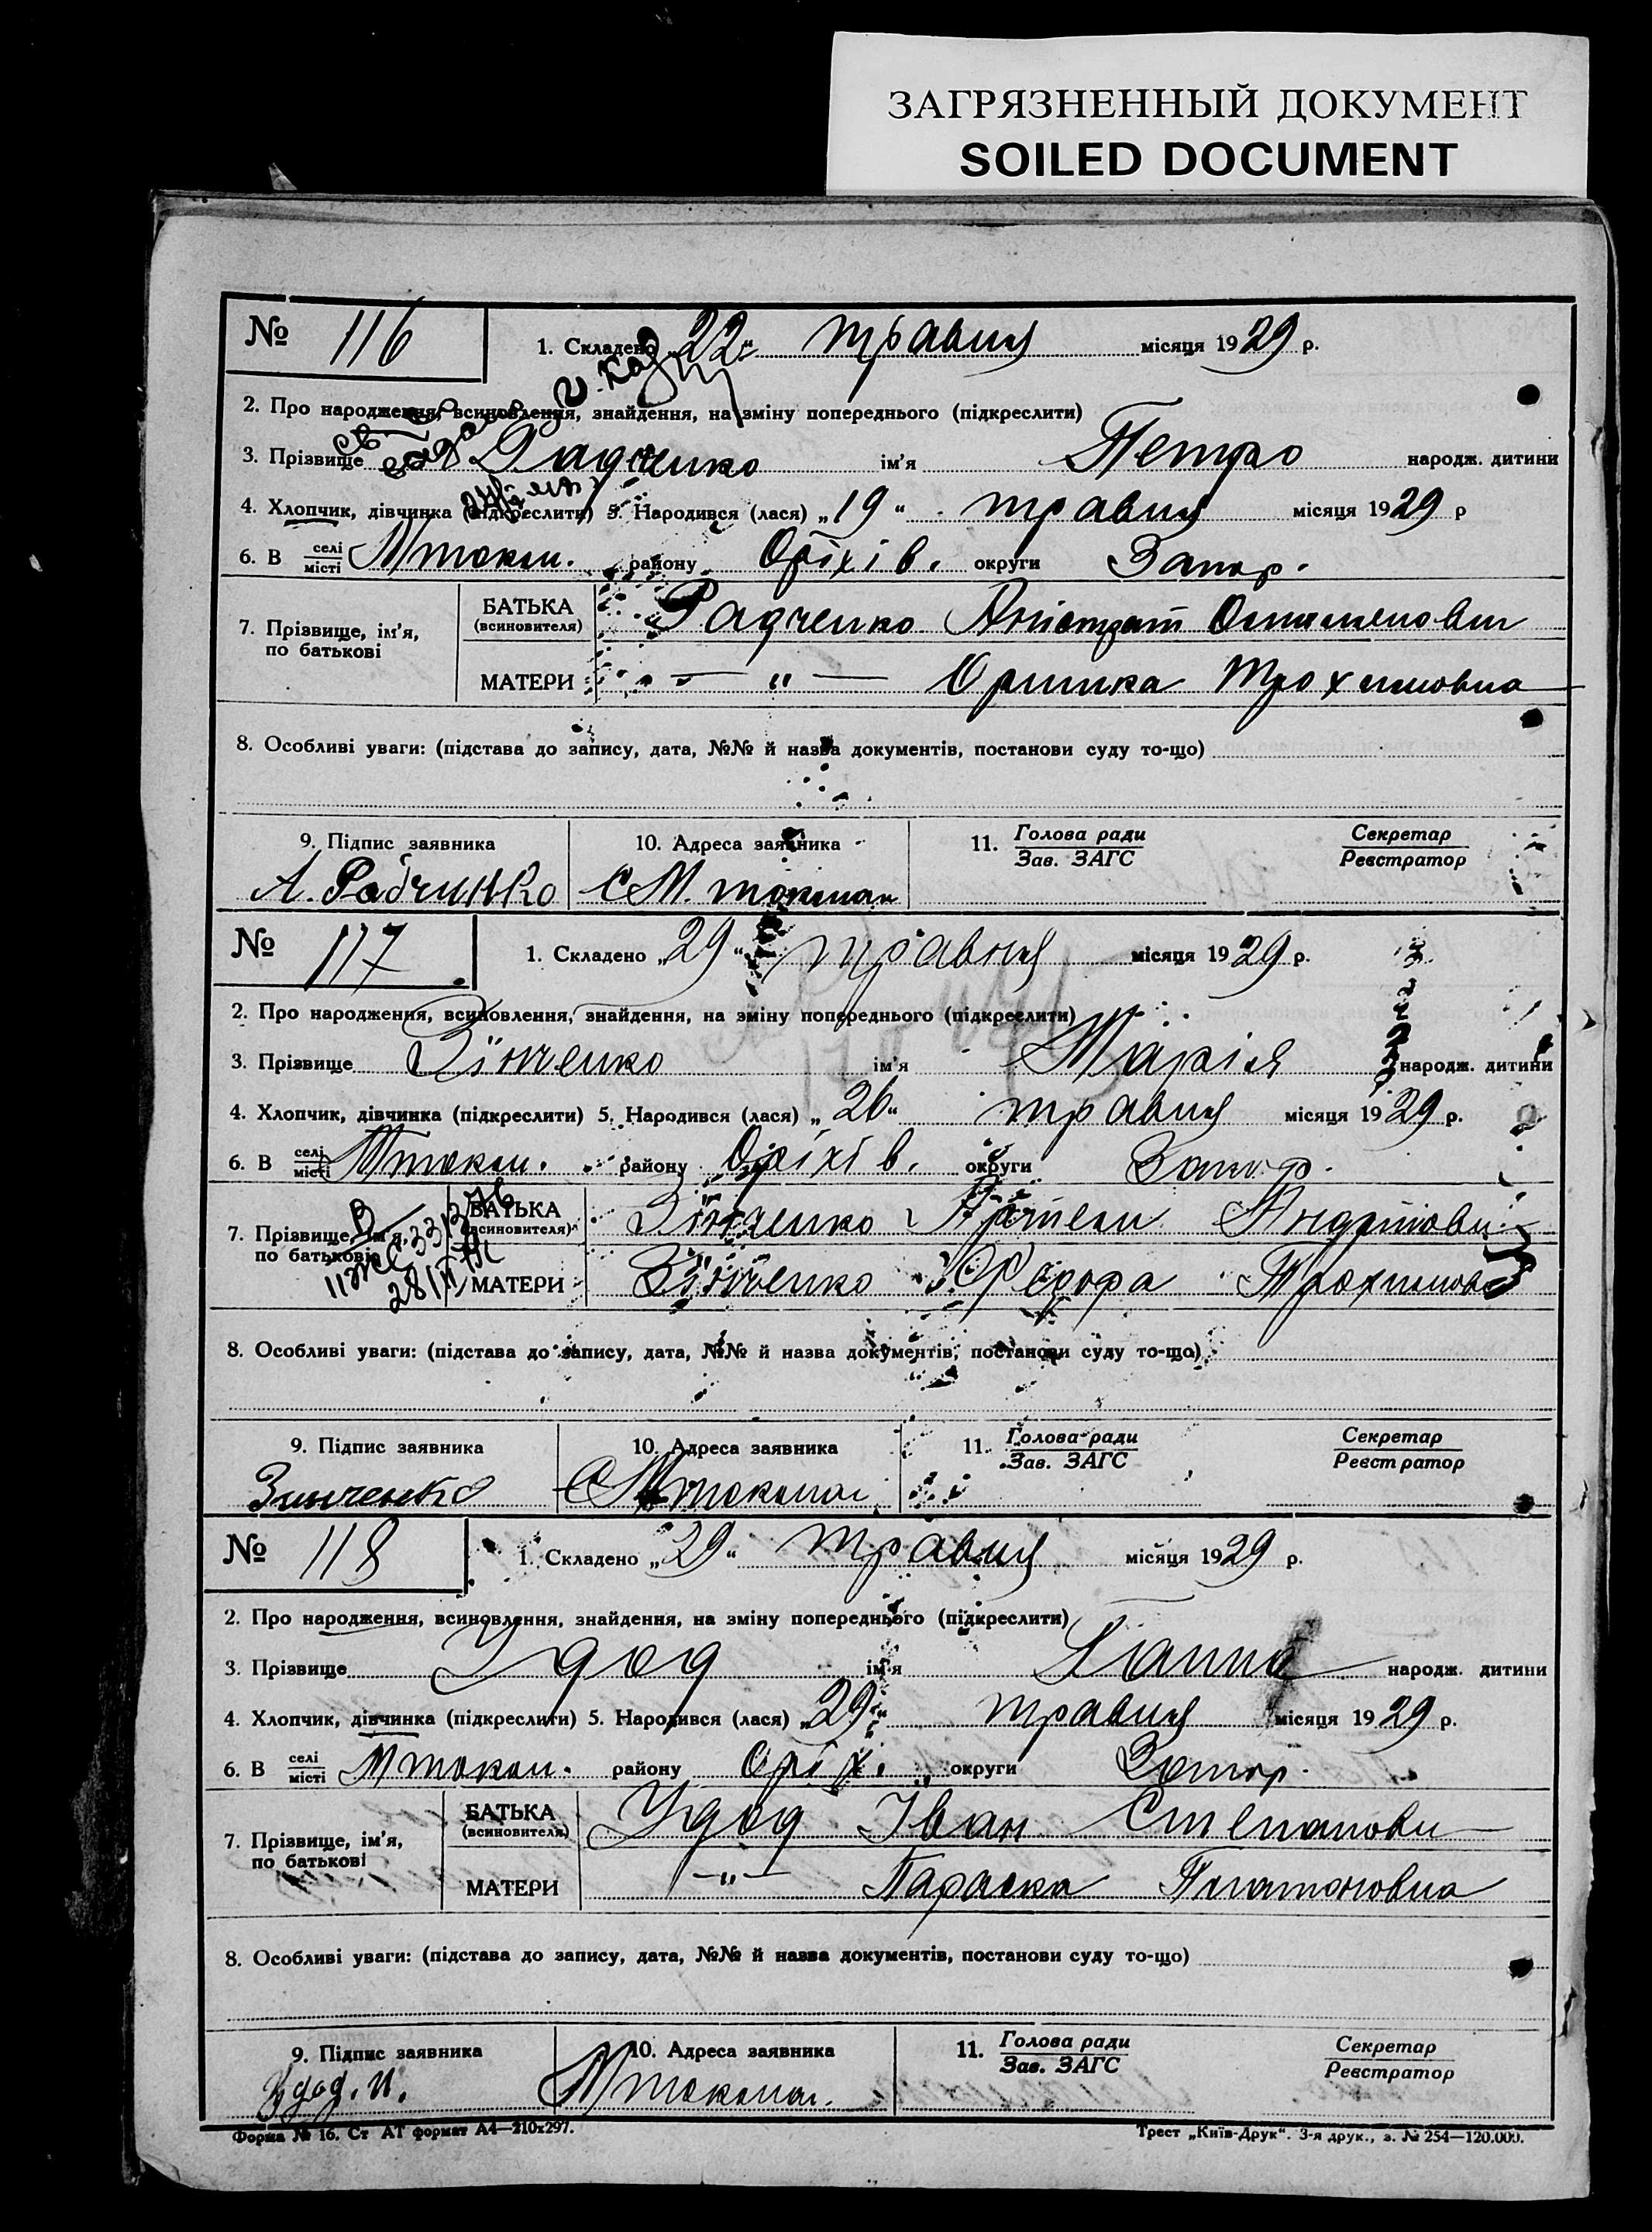 ЗАГРЯЗНЕННЫЙ ДОКУМЕНТ
SOILED DOCUMENT
№ 116 1. Складено „22“ травня місяця 1929 р.
2. Про народження, всиновлення, знайдення, на зміну попереднього (підкреслити)
3. Прізвище Радченко ім'я Петро народж. дитини
4. Хлопчик, дівчинка (підкреслити) 5. Народився (лася) „19“ травня місяця 1929 р
6. В селі місті Мтокм. району Оріхів. округи Запор.
7. Прізвище, ім'я, по батькові БАТЬКА (всиновителя) Радченко
МАТЕРИ — „ — Оришка Трохимовна
8. Особливі уваги: (підстава до запису, дата, №№ й назва документів, постанови суду то-що)
9. Підпис заявника 10. Адреса заявника 11. Голова ради Зав. ЗАГС Секретар Реєстратор
А. Радчинко С М. токмак
№ 117 1. Складено „29“ травня місяця 1929 р.
2. Про народження, всиновлення, знайдення, на зміну попереднього (підкреслити)
3. Прізвище Зінченко ім'я Марія народж. дитини
4. Хлопчик, дівчинка (підкреслити) 5. Народився (лася) „26“ травня місяця 1929 р.
6. В селі місті Мтокм. району Оріхів. округи Запор.
7. Прізвище, ім'я, по батькові БАТЬКА (всиновителя) Зінченко
МАТЕРИ Зінченко
8. Особливі уваги: (підстава до запису, дата, №№ й назва документів, постанови суду то-що)
9. Підпис заявника 10. Адреса заявника 11. Голова ради Зав. ЗАГС Секретар Реєстратор
Зинченко С Мтокмак
№ 118 1. Складено „29“ травня місяця 1929 р.
2. Про народження, всиновлення, знайдення, на зміну попереднього (підкреслити)
3. Прізвище Удод ім'я Ганна народж. дитини
4. Хлопчик, дівчинка (підкреслити) 5. Народився (лася) „29“ травня місяця 1929 р.
6. В селі місті Мтокм. району Оріх. округи Запор.
7. Прізвище, ім'я, по батькові БАТЬКА (всиновителя) Удод Іван Степанови
МАТЕРИ —„— Параска Платоновна
8. Особливі уваги: (підстава до запису, дата, №№ й назва документів, постанови суду то-що)
9. Підпис заявника 10. Адреса заявника 11. Голова ради Зав. ЗАГС Секретар Реєстратор
Удод. И. Мтокмак.
Форма № 16. Ст АТ формат А4—210х297. Трест „Київ-Друк“. 3-я друк., з. № 254—120.000.